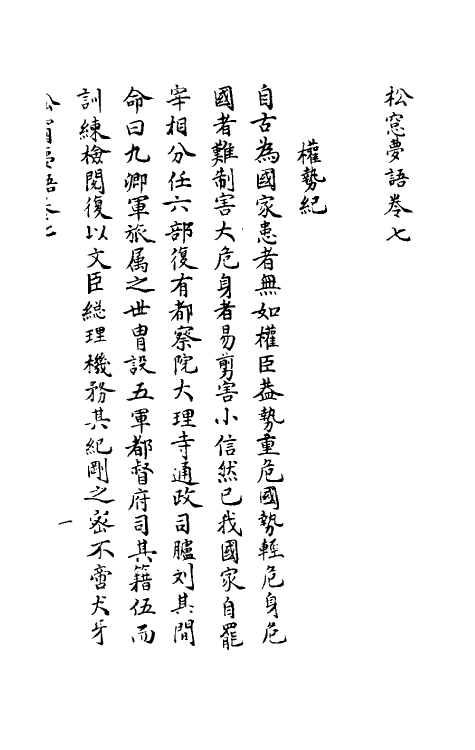 松窓夢語卷七
權勢紀
自古為國家患者無如權臣葢勢重危國勢輕危身危
國者難制害大危身者易剪害小信然已我國家自罷
宰相分任六部復有都察院大理寺通政司臚列其間
命曰九卿軍旅属之世胄設五軍都督府司其籍伍而
訓練檢閱復以文臣総理機務其紀剛之宻不啻犬牙
一